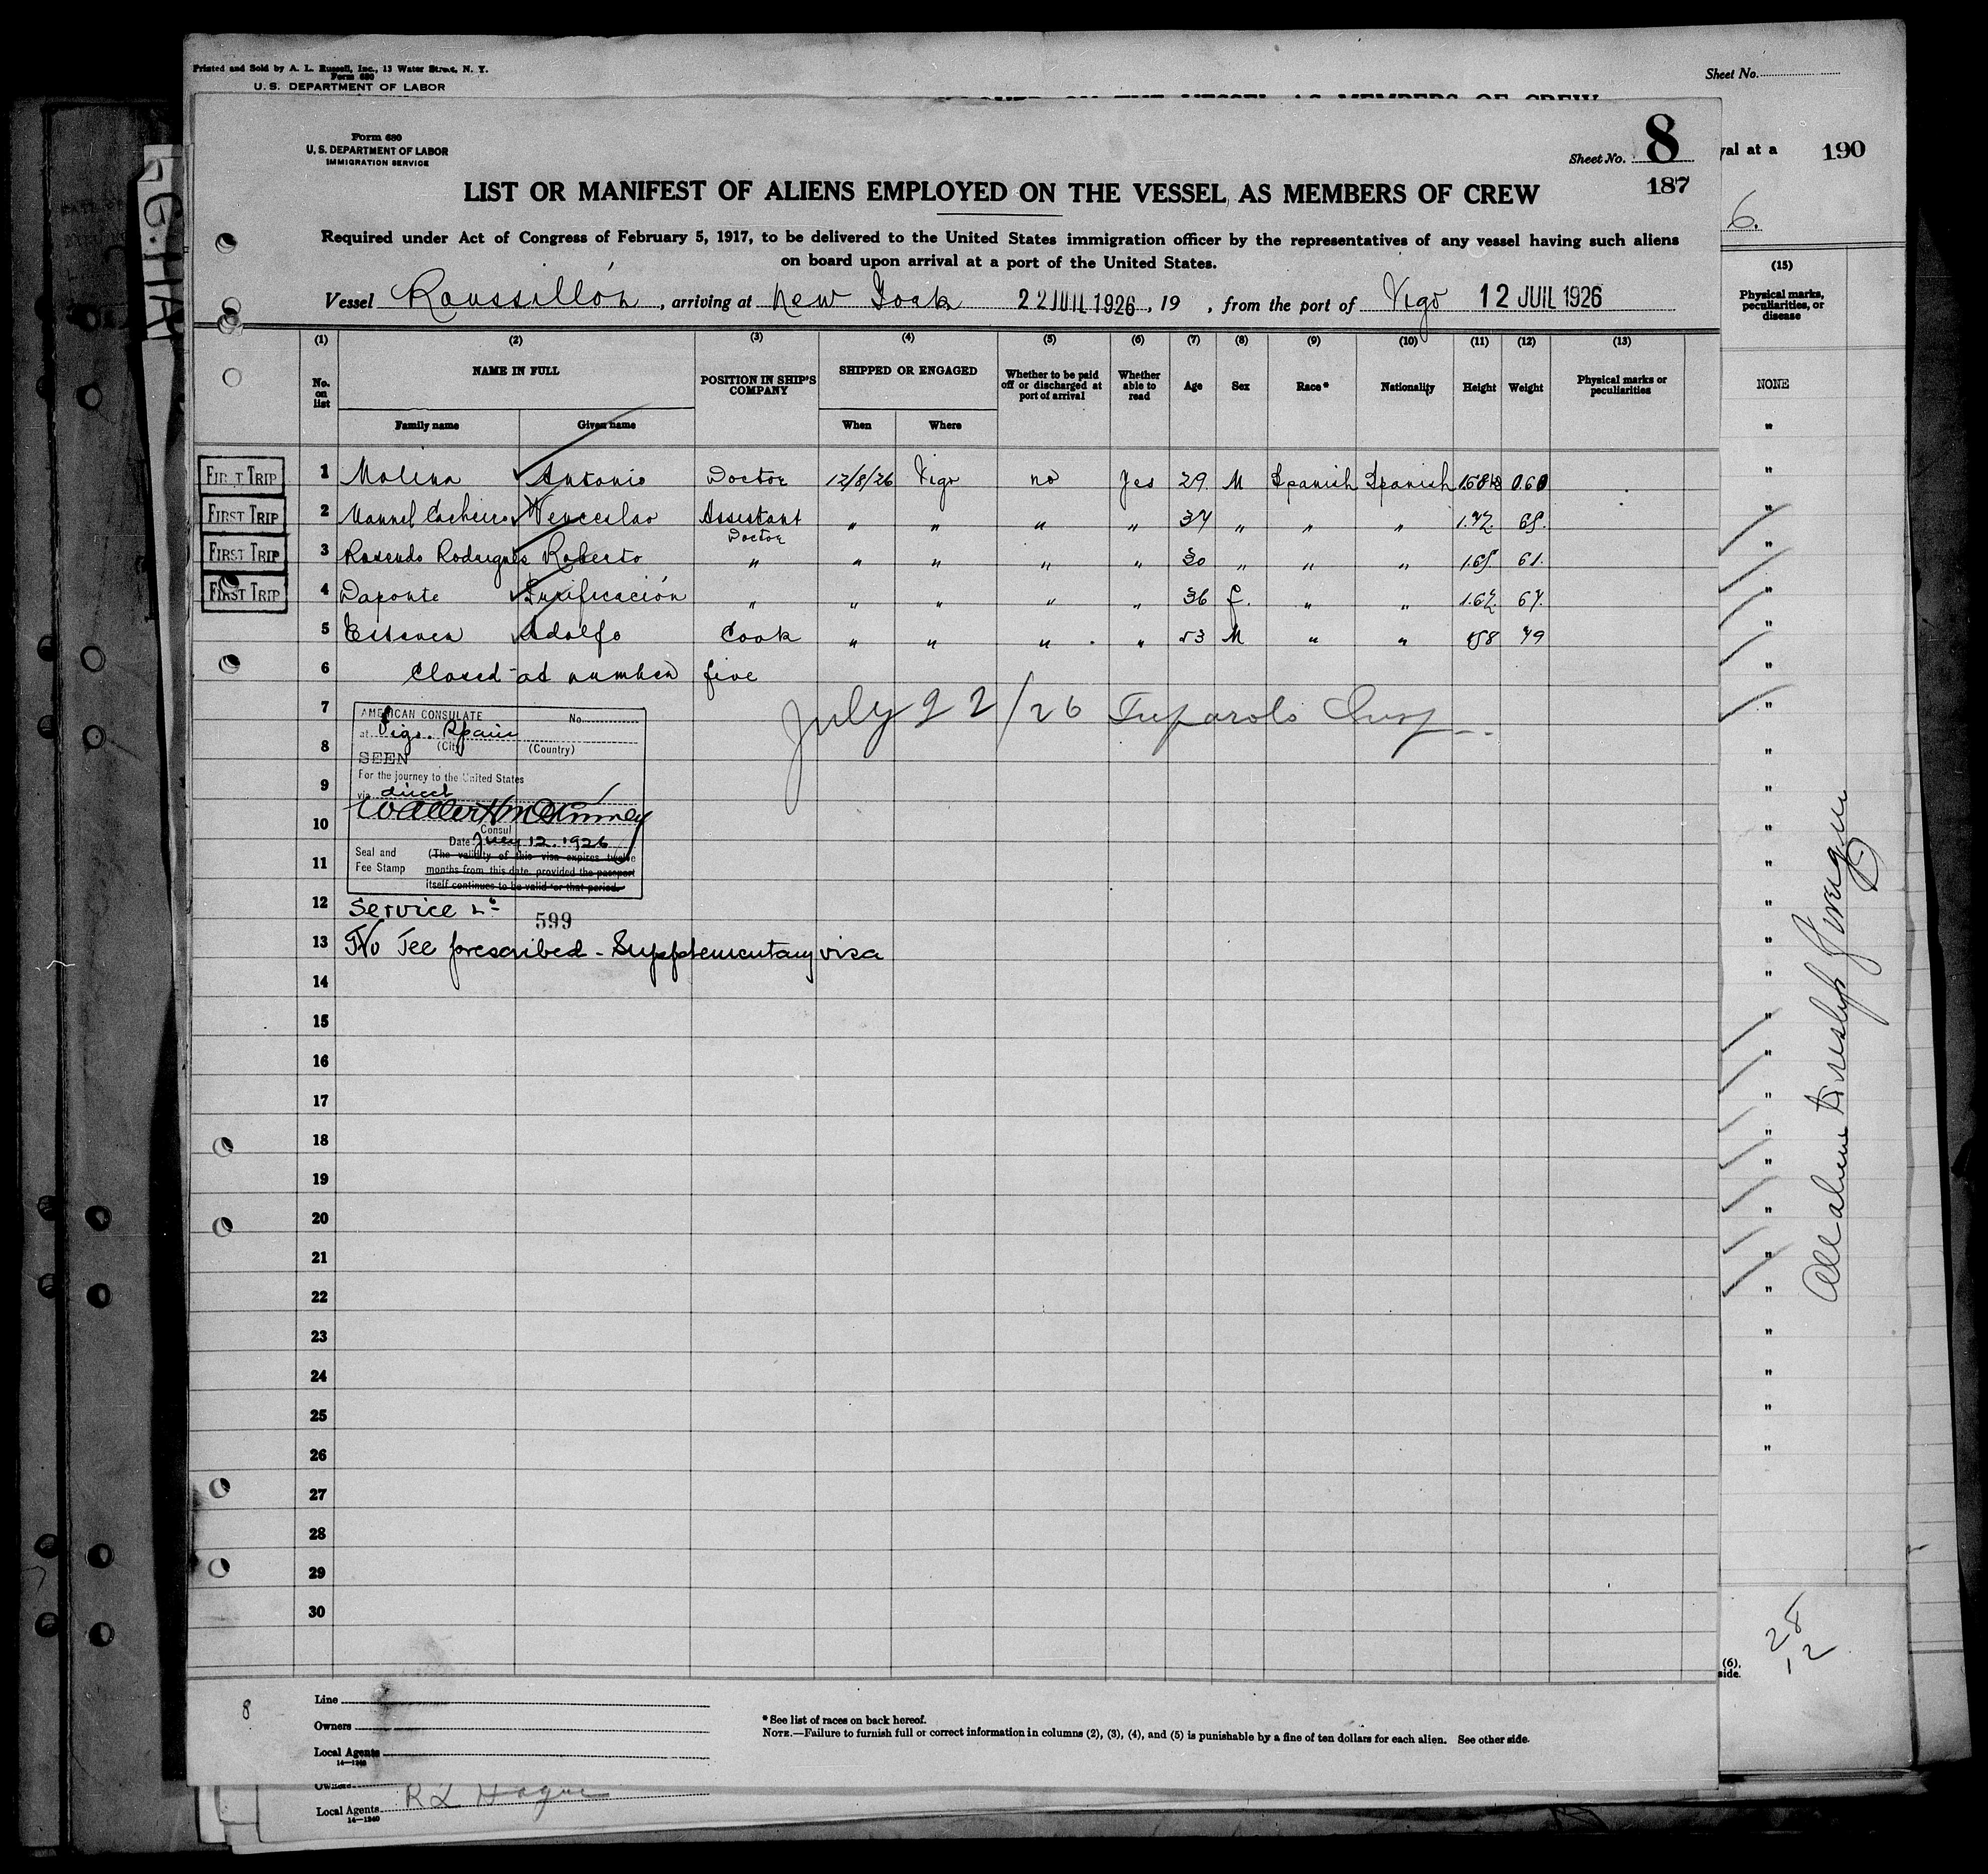 Printed and Sold by A. L. Russell, Inc., 13 Water Street, N. Y.
Form 680
U. S. DEPARTMENT OF LABOR
Sheet No.
190
val at a
6.
(15)
Physical marks, peculiarities, or disease
NONE
Form 680
U. S. DEPARTMENT OF LABOR
IMMIGRATION SERVICE
Sheet No. 8
187
LIST OR MANIFEST OF ALIENS EMPLOYED ON THE VESSEL AS MEMBERS OF CREW
Required under Act of Congress of February 5, 1917, to be delivered to the United States immigration officer by the representatives of any vessel having such aliens
on board upon arrival at a port of the United States.
Vessel Roussillón, arriving at New York 22 JUIL 1926, 19 , from the port of Vigo 12 JUIL 1926
(1) (2) (3) (4) (5) (6) (7) (8) (9) (10) (11) (12) (13)
No. on list NAME IN FULL POSITION IN SHIP'S COMPANY SHIPPED OR ENGAGED Whether to be paid off or discharged at port of arrival Whether able to read Age Sex Race* Nationality Height Weight Physical marks or peculiarities
Family name Given name When Where
FIRST TRIP 1 Molina Antonio Doctor 12/8/26 Vigo no Yes 29. M Spanish Spanish
FIRST TRIP 2 Manuel Cacheiro Venceslao Assistant Doctor " " " " 37 " " " 1.72 65.
FIRST TRIP 3 Rosendo Rodrigues Roberto " " " " " 30 " " " 1.65 61.
FIRST TRIP 4 Daponte Purificación " " " " " 36 f. " " 1.62 67.
5 Esteven Adolfo Cook " " " " 53 M " " 79
6 Closed at number five
7
July 22/26 Insp
8
9
10
11
AMERICAN CONSULATE No.
at Vigo. Spain
(City) (Country)
SEEN
For the journey to the United States
via direct
Consul
Date July 12. 1926
Seal and Fee Stamp
(The validity of this visa expires twelve
months from this date, provided the passport
itself continues to be valid for that period.
12 Service
599
13 No Fee prescribed - Supplementary visa
14
15
16
17
18
19
20
21
22
23
24
25
26
27
28
29
30
8
Line
Owners
Local Agents
14—1240
*See list of races on back hereof.
NOTE.—Failure to furnish full or correct information in columns (2), (3), (4), and (5) is punishable by a fine of ten dollars for each alien. See other side.
(6),
side.
28
12
Owners
Local Agents R L Hague
14—1240